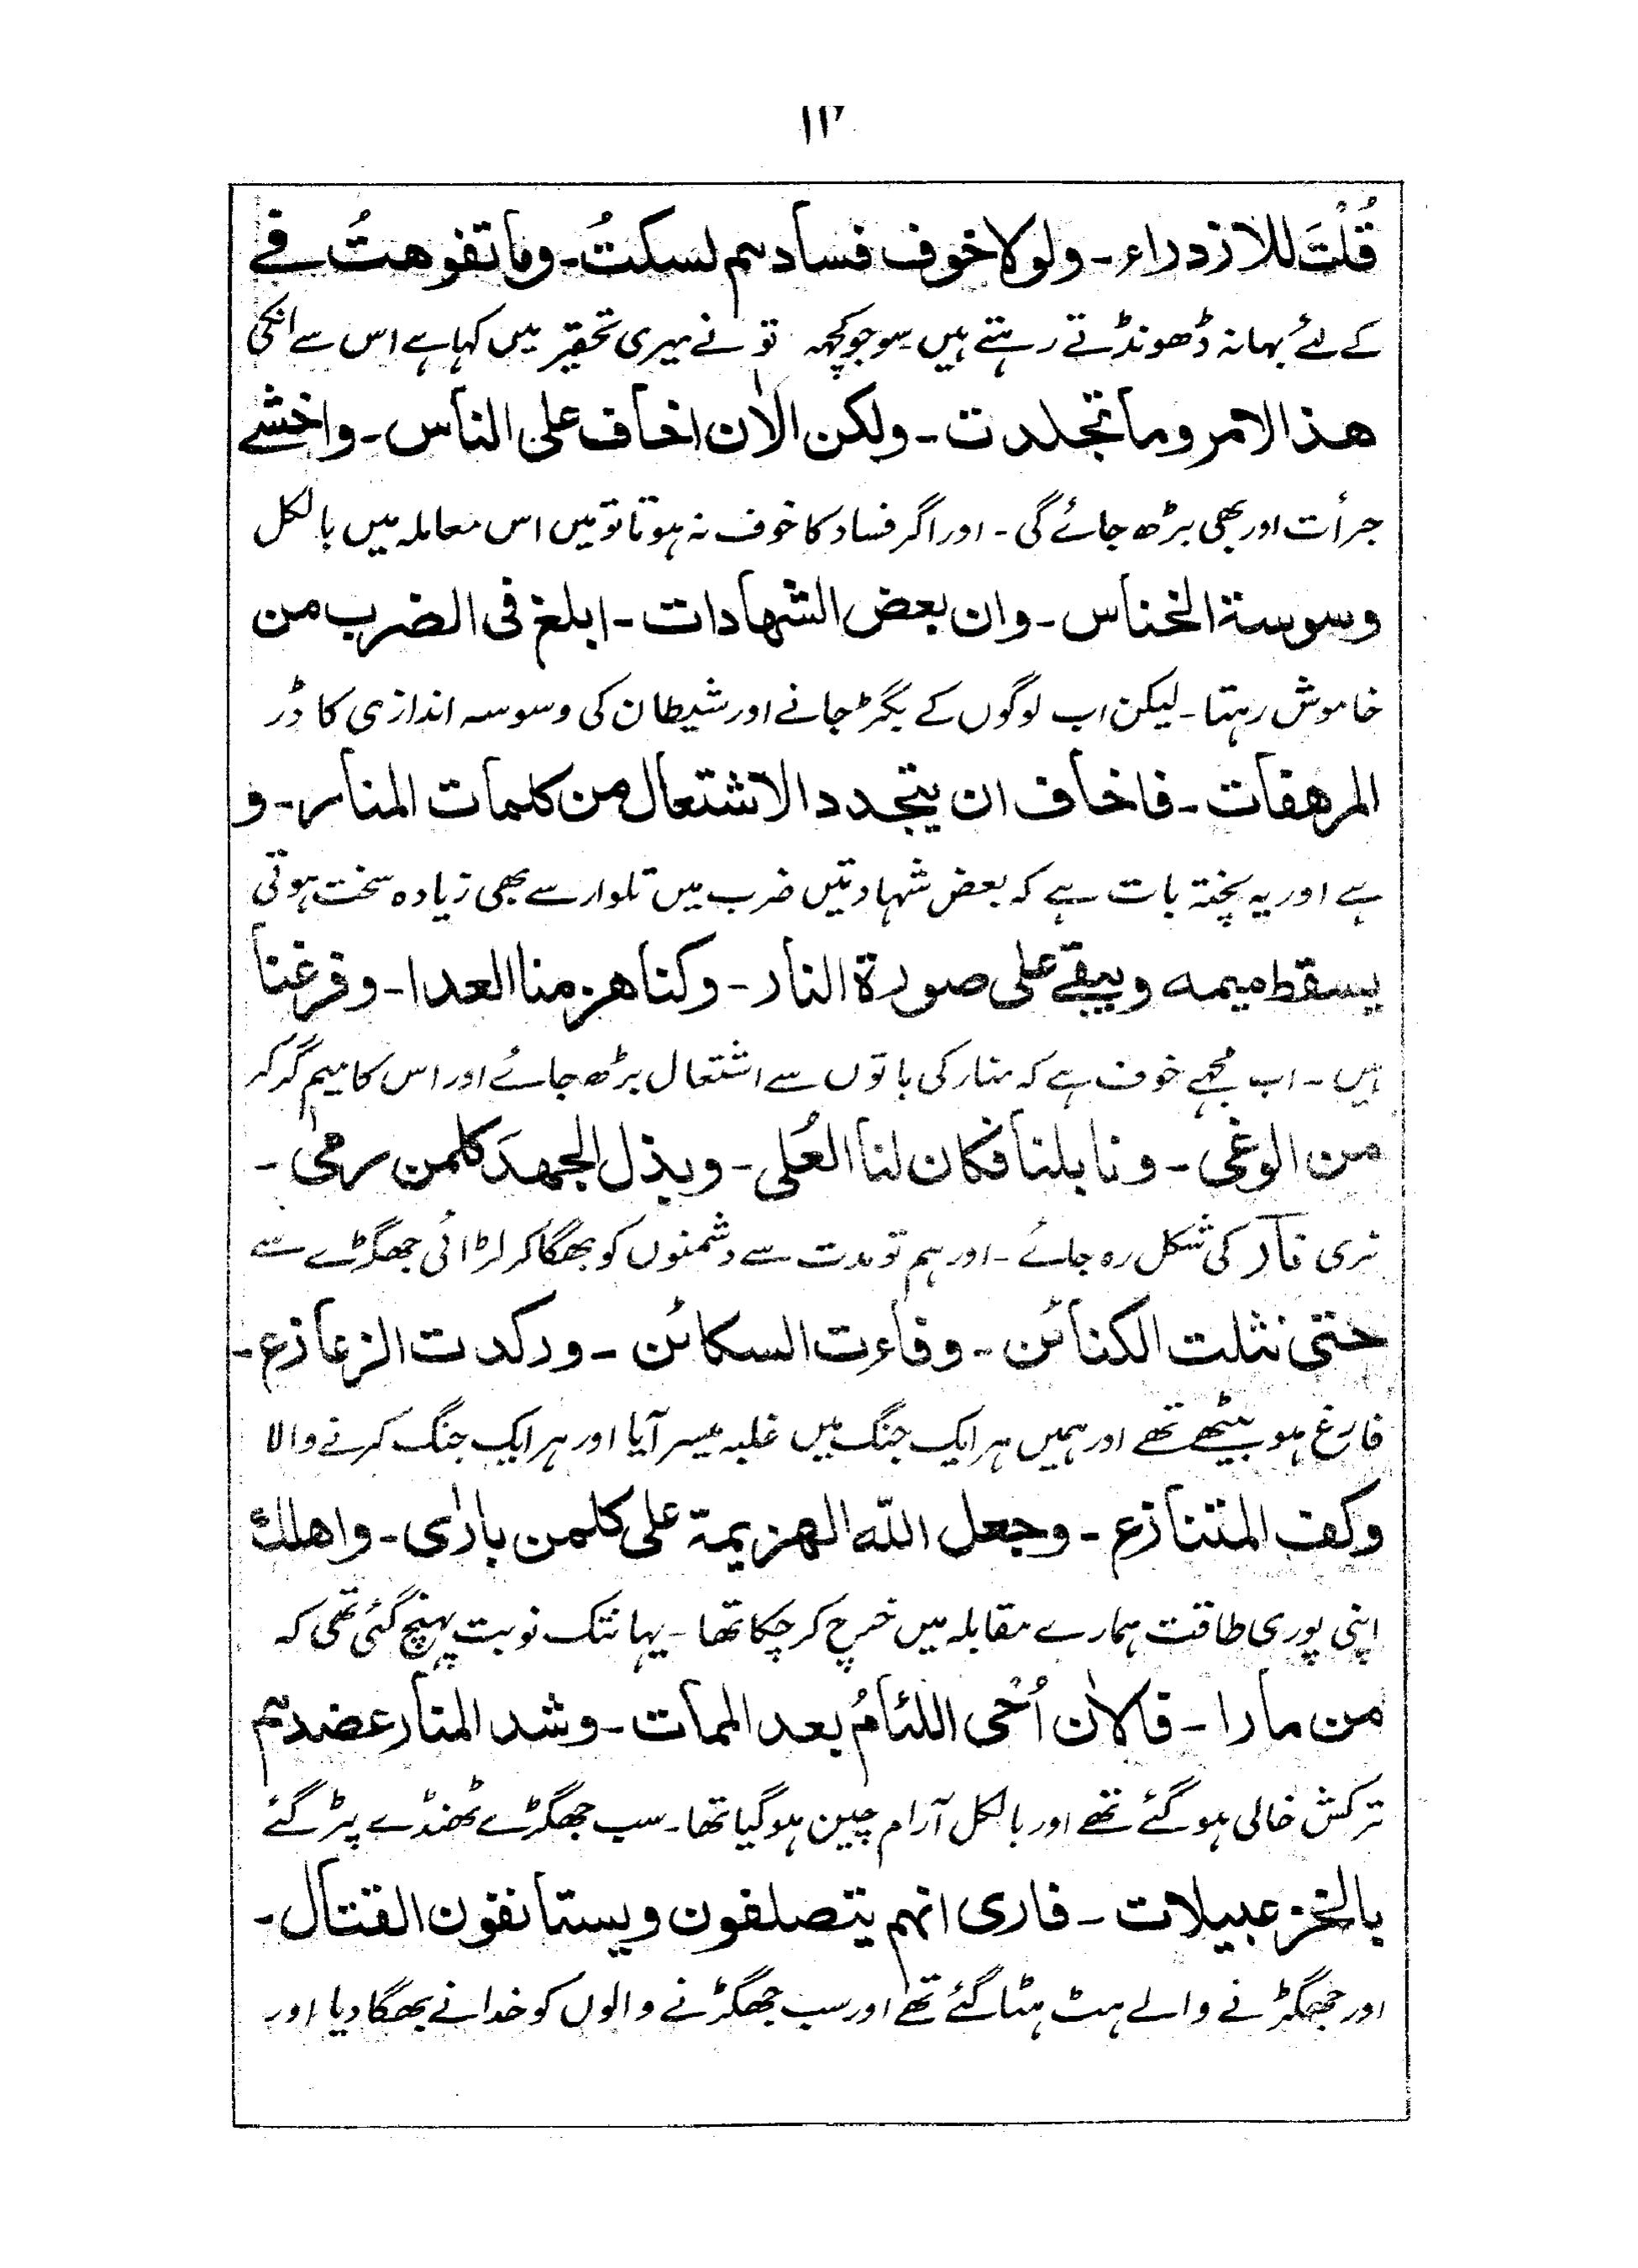 ۱۲
قُلْتَ للازدراء۔ ولولا خوف فسادهم لسکتُ۔ وما تفوهتُ فے
کے لئے بہانہ ڈھونڈتے رہتے ہیں۔ سو جو کچھہ تو نے میری تحقیر میں کہا ہے اس سے انکی
هذا الامر وما تجلدت۔ ولکن الاٰن اخاف علی الناس۔ واخشے
جرأت اور بھی بڑھ جائے گی۔ اور اگر فساد کا خوف نہ ہوتا تو میں اس معاملہ میں بالکل
وسوسة الخناس۔ وان بعض الشهادات۔ ابلغ فی الضرب من
خاموش رہتا۔ لیکن اب لوگوں کے بگڑ جانے اور شیطان کی وسوسہ اندازی کا ڈر
المرهفات۔ فاخاف ان یتجدد الاشتعال من کلمات المنار۔ و
ہے اور یہ پختہ بات ہے کہ بعض شہادتیں ضرب میں تلوار سے بھی زیادہ سخت ہوتی
یسقط میمه ویبقے علی صورة النار۔ وکنا هزمنا العدا۔ وفرغنا
ہیں۔ اب مجھے خوف ہے کہ منار کی باتوں سے اشتعال بڑھ جائے اور اس کا میم گر کر
من الوغی۔ ونابلنا فکان لنا العُلی۔ وبذل الجهدَ کلمن رمیٰ۔
نری نار کی شکل رہ جائے۔ اور ہم تو مدت سے دشمنوں کو بھگا کر لڑائی جھگڑے سے
حتی نثلت الکنائن۔ وفاءت السکائن۔ ورکدت الزعازع۔
فارغ ہو بیٹھے تھے اور ہمیں ہر ایک جنگ میں غلبہ میسر آیا اور ہر ایک جنگ کرنے والا
وکف المتنازع۔ وجعل اللّٰه الهزیمة علی کلمن باریٰ۔ واهلك
اپنی پوری طاقت ہمارے مقابلہ میں خرچ کر چکا تھا۔ یہانتک نوبت پہنچ گئی تھی کہ
من مارا۔ فالاٰن اُحْی اللئامُ بعد الممات۔ وشد المنار عضدهم
ترکش خالی ہو گئے تھے اور بالکل آرام چین ہو گیا تھا۔ سب جھگڑے ٹھنڈے پڑ گئے
بالخزعبیلات۔ فاری انهم یتصلفون ویستانفون القتال۔
اور جھگڑنے والے ہٹ ہٹا گئے تھے اور سب جھگڑنے والوں کو خدا نے بھگا دیا اور